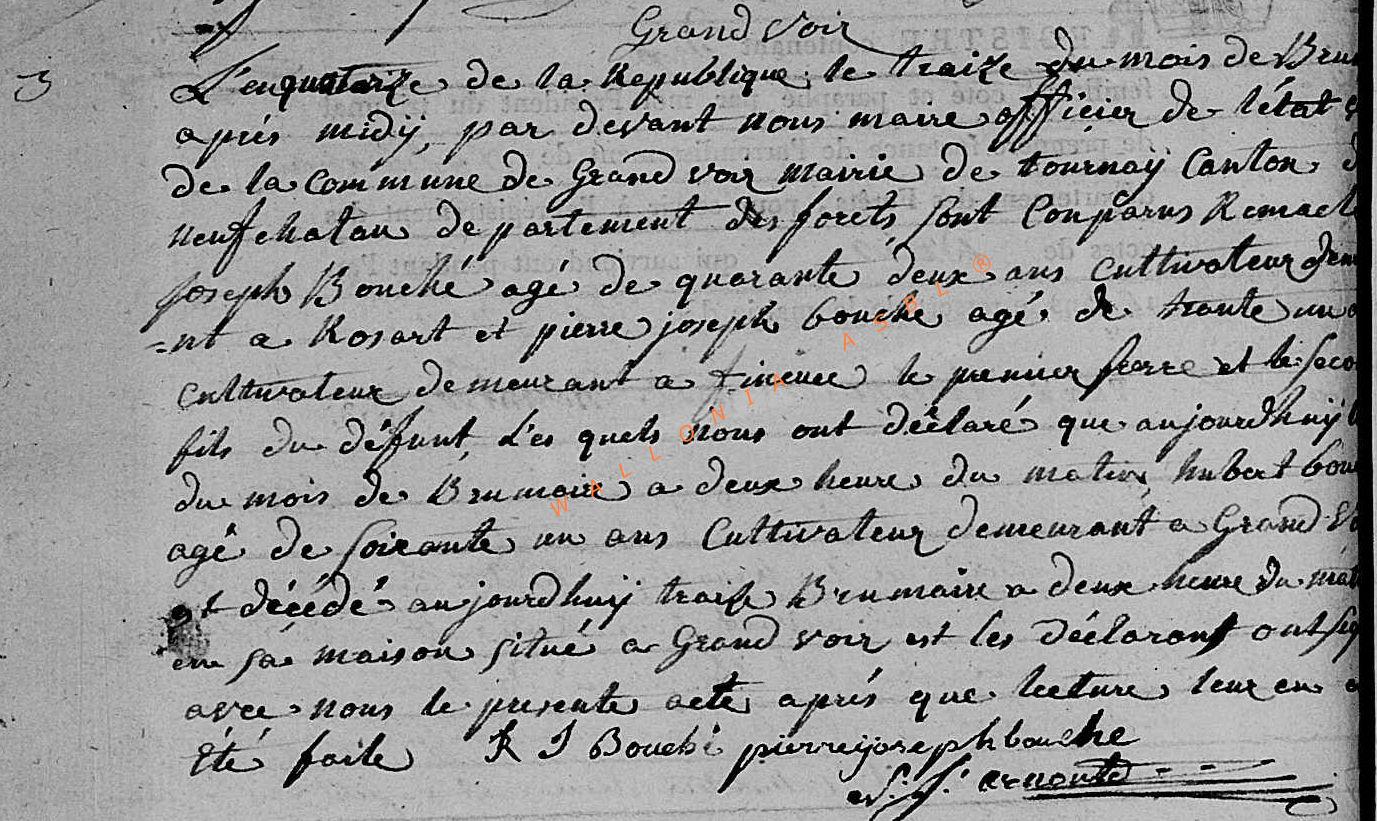 Grand Voir
3
L'enquatorze de la Republique le traize du mois de Brum
aprés midÿ, par devant nous maire officier de létat
de la Commune de Grand voir Mairie de tournaÿ Canton d
neufchatau departement des forets sont Conparus Remacle
joseph Bouché agé de quarante deux ans Cultivateur dem
=nt a Rosart et pierre joseph bouché agé de trante un a
Cultivateur demeurant a le premier frere et le seco
fils du défunt, Les quels nous ont déclaré que aujourdhuÿ
du mois de Brumaire a deux heure du matin, hubert bou
agé de soixante un ans Cultivateur demeurant a Grand Vo
et décédé aujourdhuÿ traize Brumaire a deux heure du mat
en sa maison situé a Grand voir est les déclarant ont sig
avec nous le presente acte aprés que lecture leur en a
été faite R J Bouché pierre joseph bouche
arnould
WALLONIA ASBL ®